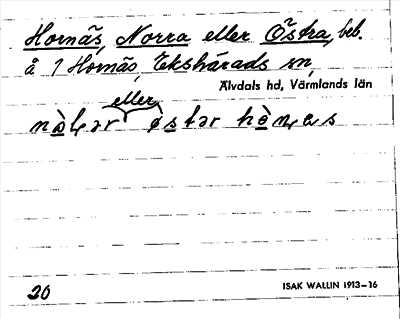 Hornäs, Norra eller Östra, beb.
å 1 Hornäs, Ekshärads sn,
Älvdals hd, Värmlands län
eller
østər
20
ISAK WALLIN 1913–16